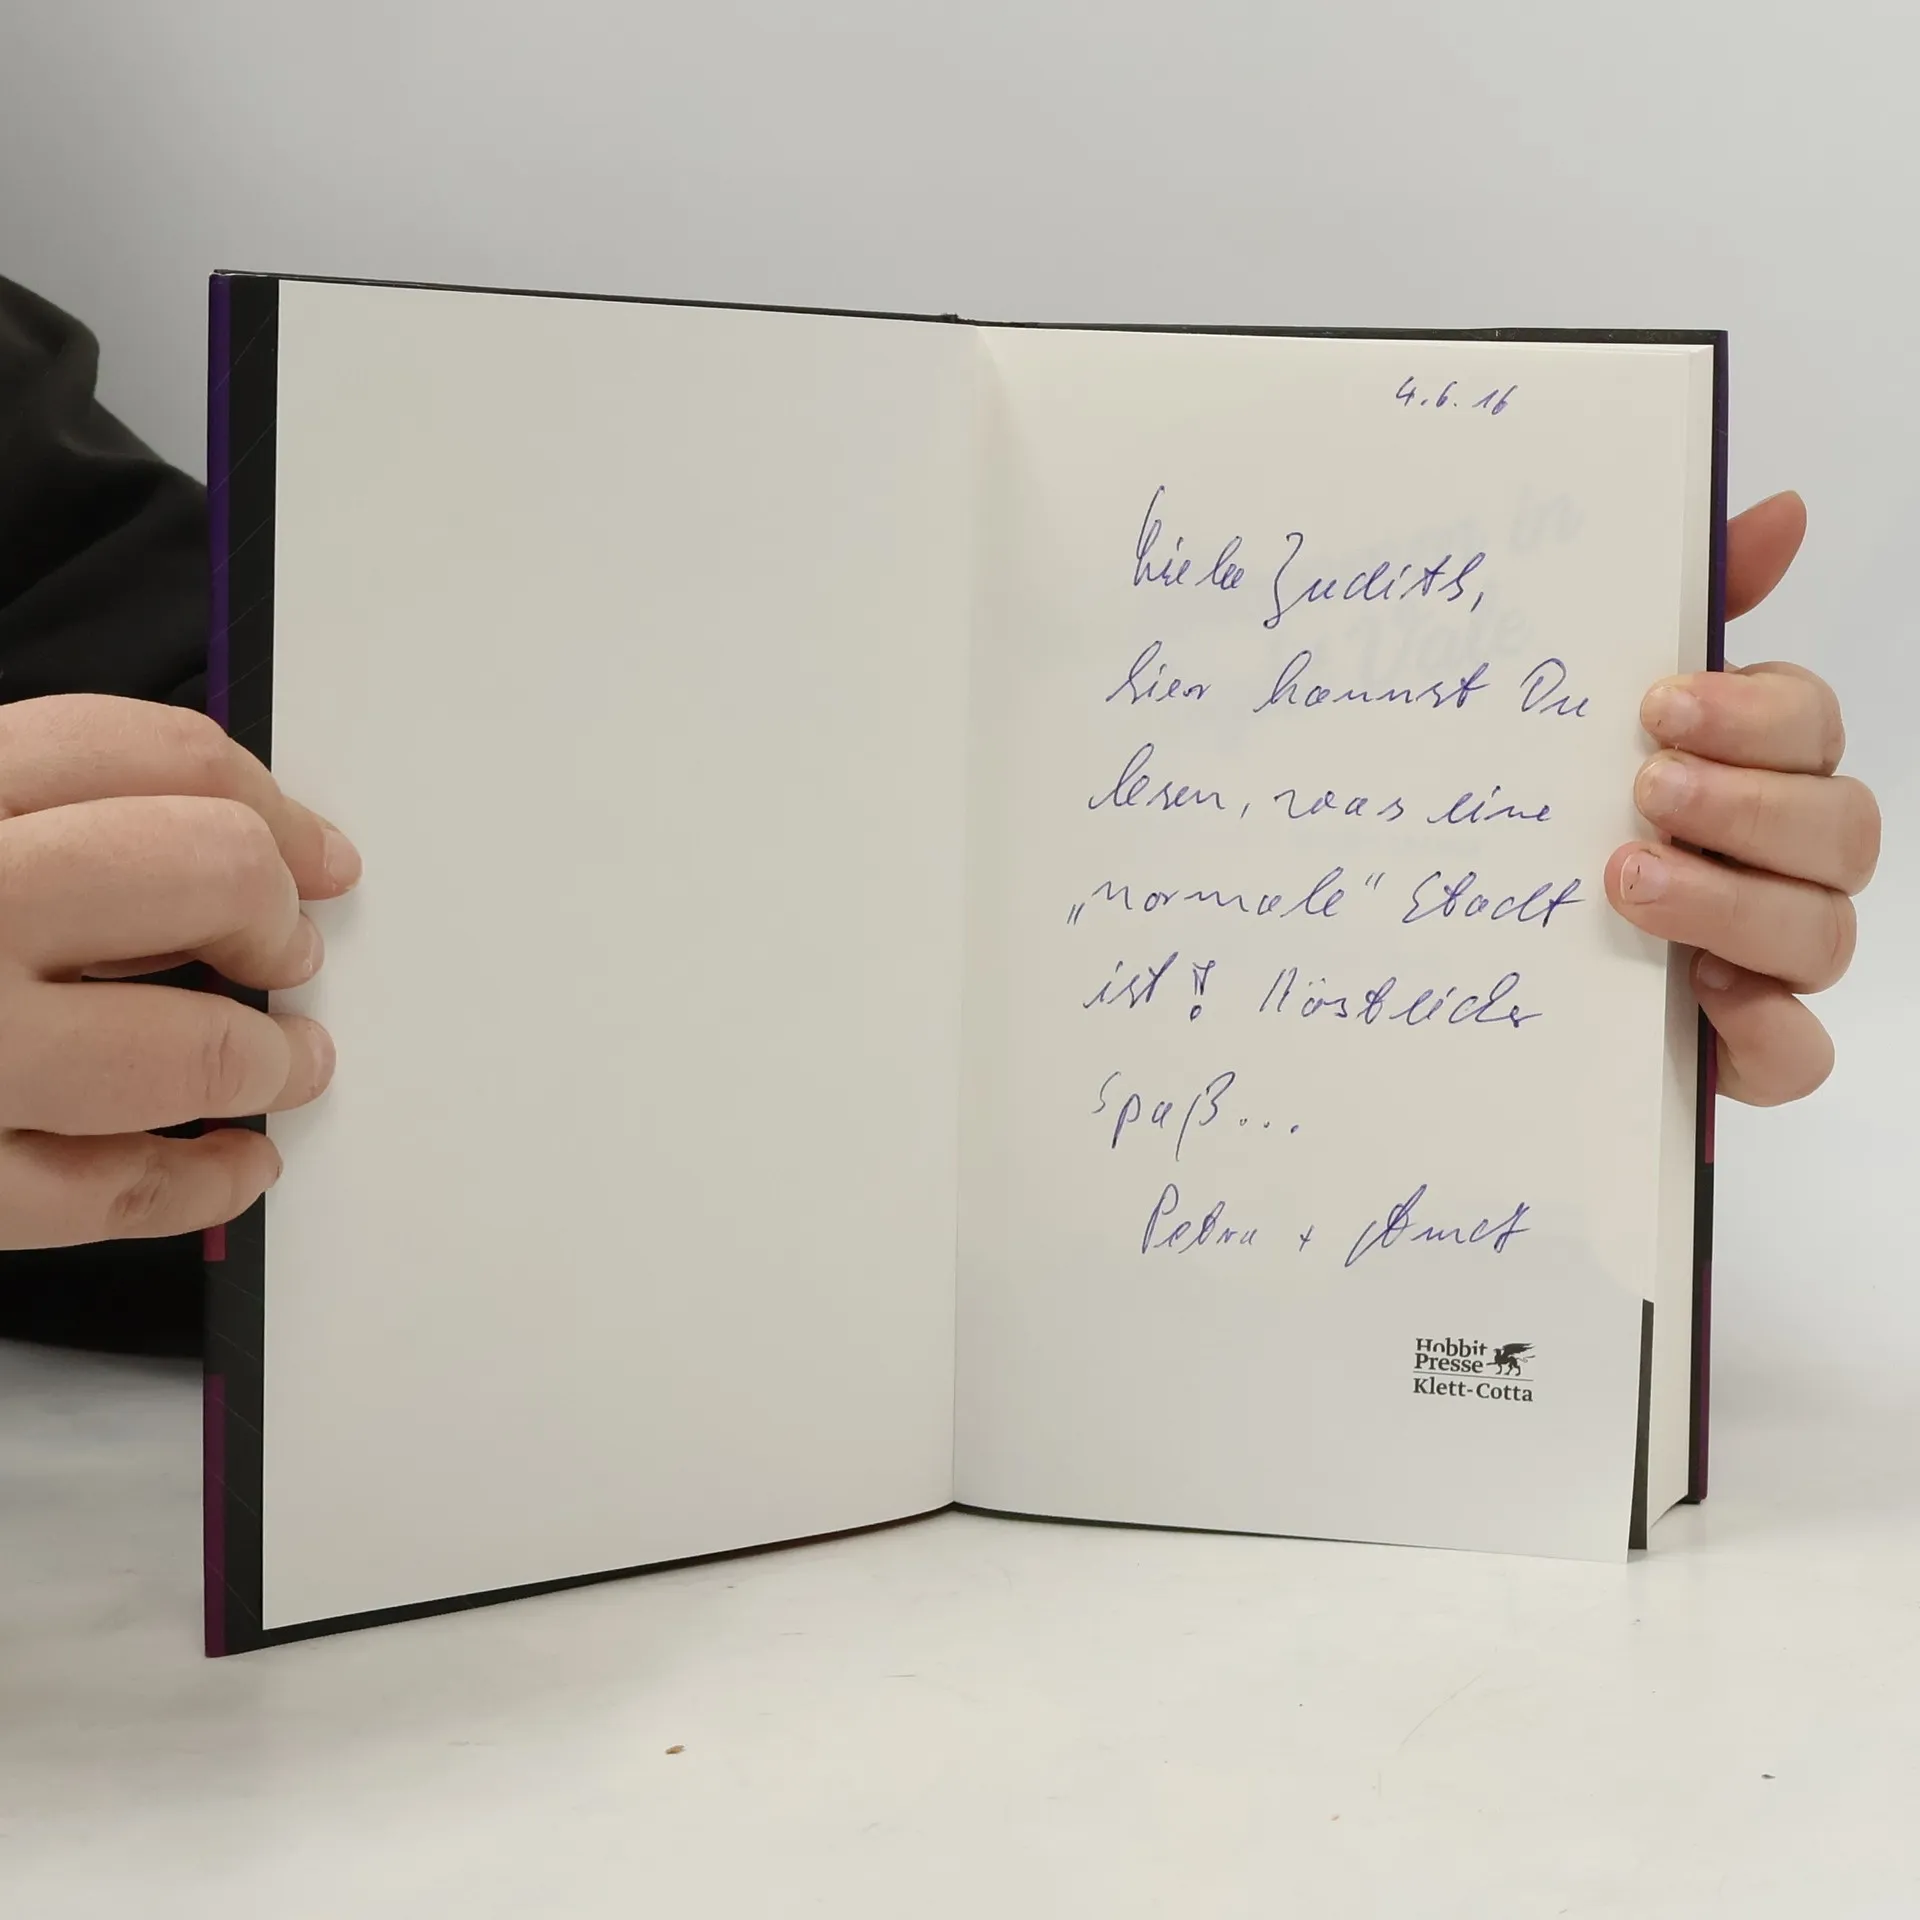 4.6.16
Liebe Judith,
hier kannst Du
lesen, was eine
„normale“ Stadt
ist! Köstlicher
Spaß...
Petra +
Hobbit
Presse
Klett-Cotta